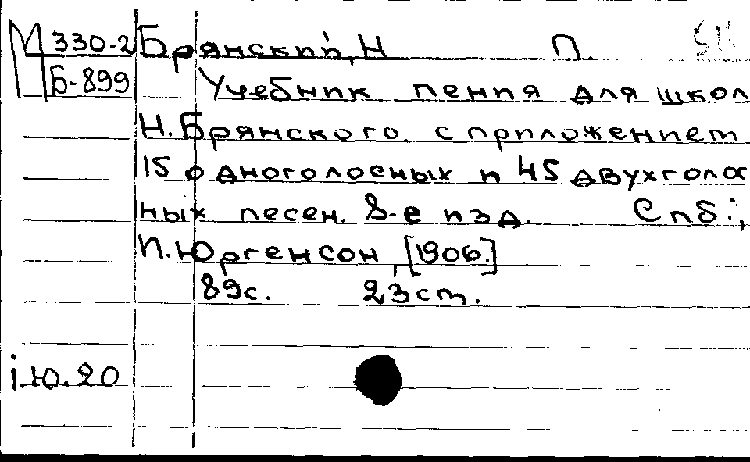 М 330-2 Брянский, Н П.
Б-899 Учебник пения для школ
Н. Брянского. с приложением
15 одноголосных и 45 двухголос
ных песен. 8-е изд. Спб.,
П. Юргенсон, [1906.]
89с. 23 см.
i.Ю.20